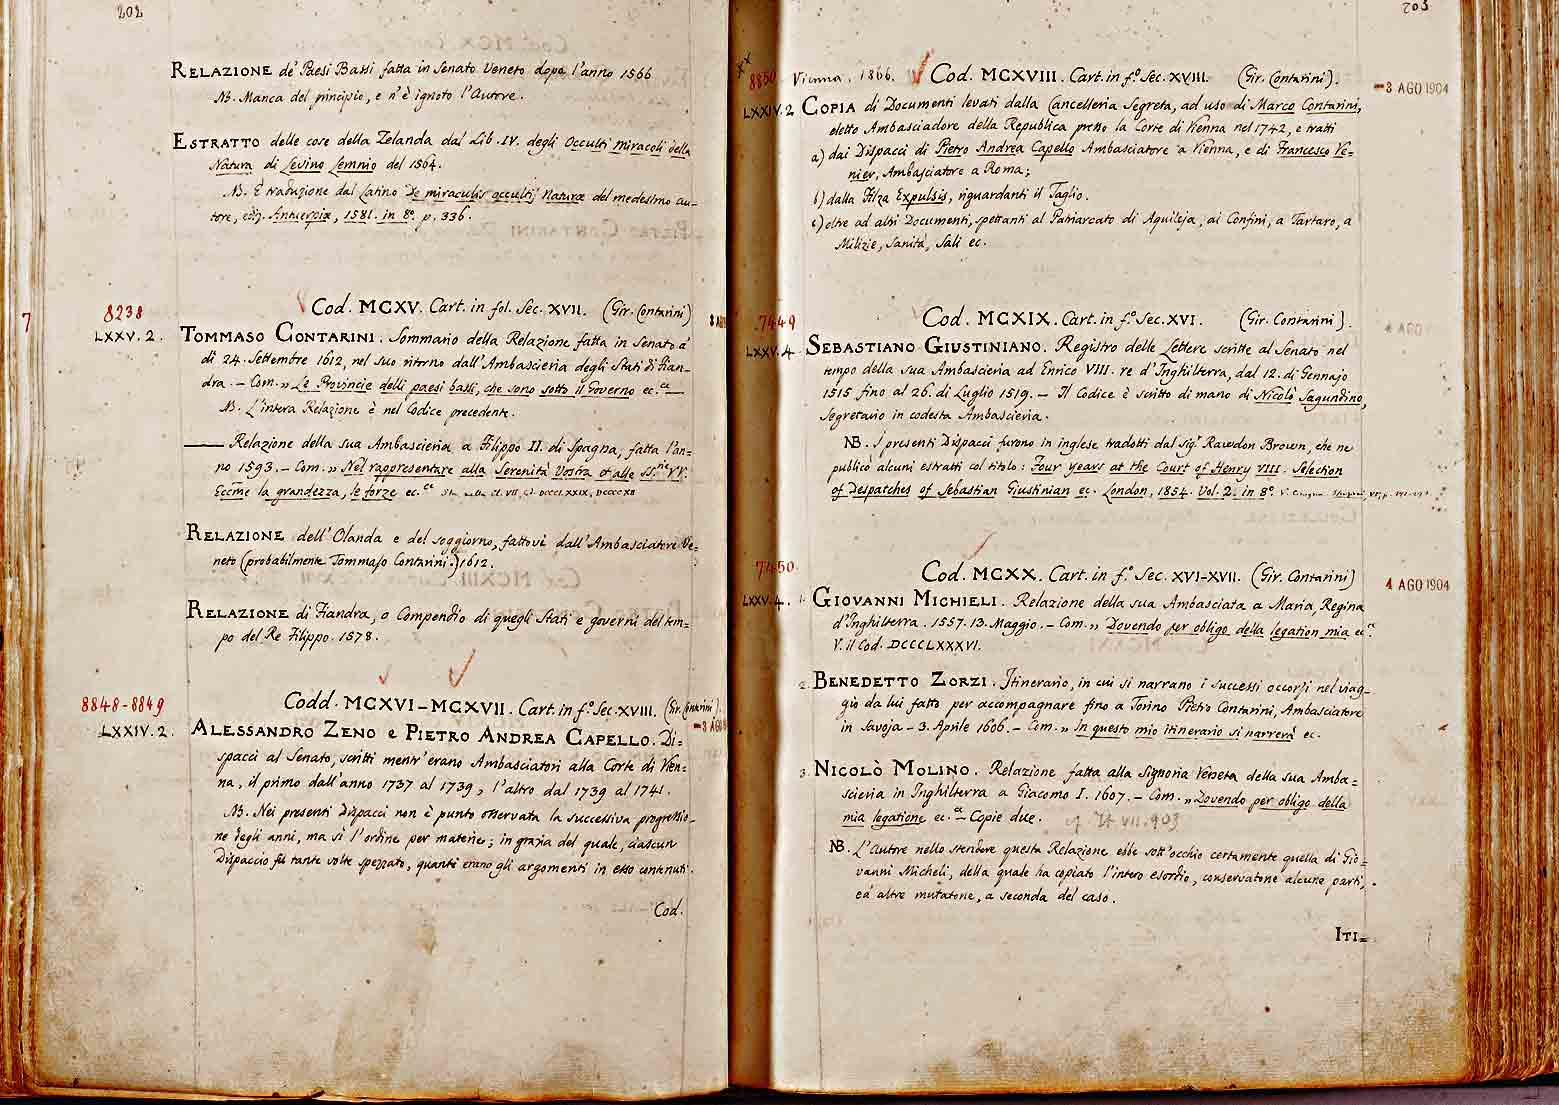 202
RELAZIONE de' Paesi Bassi fatta in Senato Veneto dopo l'anno 1566
NB. Manca del principio, e n'è ignoto l'Autore.
ESTRATTO delle cose della Zelanda dal Lib. IV. degli Occulti miracoli della
Natura di Levino Lemnio del 1564.
NB. È traduzione dal latino De miraculis occultis Naturæ del medesimo au-
tore, ediz. Antuerpiæ, 1581. in 8º. p. 336.
7
8238
LXXV. 2.
Cod. MCXV. Cart. in fol. Sec. XVII. (Gir. Contarini)
TOMMASO CONTARINI. Sommario della Relazione fatta in Senato a'
dì 24. Settembre 1612, nel suo ritorno dall'Ambascieria degli Stati di Fian-
dra. – Com. „ Le Provincie delli paesi bassi, che sono sotto il Governo ec.
NB. L'intera Relazione è nel Codice precedente.
—— Relazione della sua Ambascieria a Filippo II. di Spagna, fatta l'an-
no 1593. – Com. „ Nel rappresentare alla Serenità Vostra et alle SS.ne VV.
Eccme la grandezza, le forze ec.
RELAZIONE dell'Olanda e del soggiorno, fattovi dall'Ambasciatore Ve=
neto (probabilmente Tommaso Contarini.) 1612.
RELAZIONE di Fiandra, o Compendio di quegli Stati e governi del tem=
po del Re Filippo. 1578.
8848-8849
LXXIV. 2.
Codd. MCXVI–MCXVII. Cart. in f.º Sec. XVIII. (Gir. Contarini).
ALESSANDRO ZENO e PIETRO ANDREA CAPELLO. Di=
spacci al Senato, scritti mentr'erano Ambasciatori alla Corte di Vien=
na, il primo dall'anno 1737 al 1739, l'altro dal 1739 al 1741.
NB. Nei presenti Dispacci non è punto osservata la successiva progressio-
ne degli anni, ma sì l'ordine per materie; in grazia del quale, ciascun
Dispaccio fu tante volte spezzato, quanti erano gli argomenti in esso contenuti.
Cod.
203
8850
LXXIV. 2
Vienna. 1866. Cod. MCXVIII. Cart. in f.º Sec. XVIII. (Gir. Contarini).
-3 AGO 1904
COPIA di Documenti levati dalla Cancelleria Segreta, ad uso di Marco Contarini,
eletto Ambasciadore della Republica presso la Corte di Vienna nel 1742, e tratti
a) dai Dispacci di Pietro Andrea Capello Ambasciatore a Vienna, e di Francesco Ve=
nier, Ambasciatore a Roma;
b) dalla Filza Expulsis, riguardanti il Taglio.
c) oltre ad altri Documenti, spettanti al Patriarcato di Aquileja, ai Confini, a Tartaro, a
Milizie, Sanità, Sali ec.
7449
LXXV. 4.
Cod. MCXIX. Cart. in f.º Sec. XVI. (Gir. Contarini).
SEBASTIANO GIUSTINIANO. Registro delle Lettere scritte al Senato nel
tempo della sua Ambascieria ad Enrico VIII. re d'Inghilterra, dal 12. di Gennajo
1515 fino al 26. di Luglio 1519. – Il Codice è scritto di mano di Nicolò Sagundino,
Segretario in codesta Ambascieria.
NB. I presenti Dispacci furono in inglese tradotti dal sigr Rawdon Brown, che ne
publicò alcuni estratti col titolo: Four years at the Court of Henry VIII. Selection
of Despatches of Sebastian Giustinian ec. London, 1854. Vol. 2. in 8º.
7450
LXXV. 4.
Cod. MCXX. Cart. in f.º Sec. XVI-XVII. (Gir. Contarini)
4 AGO 1904
1. GIOVANNI MICHIELI. Relazione della sua Ambasciata a Maria Regina
d'Inghilterra. 1557. 13. Maggio. – Com. „ Dovendo per obligo della legation mia ec.
V. il Cod. DCCCLXXXVI.
2. BENEDETTO ZORZI. Itinerario, in cui si narrano i successi occorsi nel viag-
gio da lui fatto per accompagnare fino a Torino Pietro Contarini, Ambasciatore
in Savoja – 3. Aprile 1606. – Com. „ In questo mio itinerario si narrerà ec.
3. NICOLÒ MOLINO. Relazione fatta alla Signoria Veneta della sua Amba=
scieria in Inghilterra a Giacomo I. 1607. – Com. „ Dovendo per obligo della
mia legatione ec. – Copie due.
NB. L'autore nello stendere questa Relazione ebbe sott'occhio certamente quella di Gio=
vanni Micheli, della quale ha copiato l'intero esordio, conservatone alcune parti,
ed altre mutatone, a seconda del caso.
ITI=